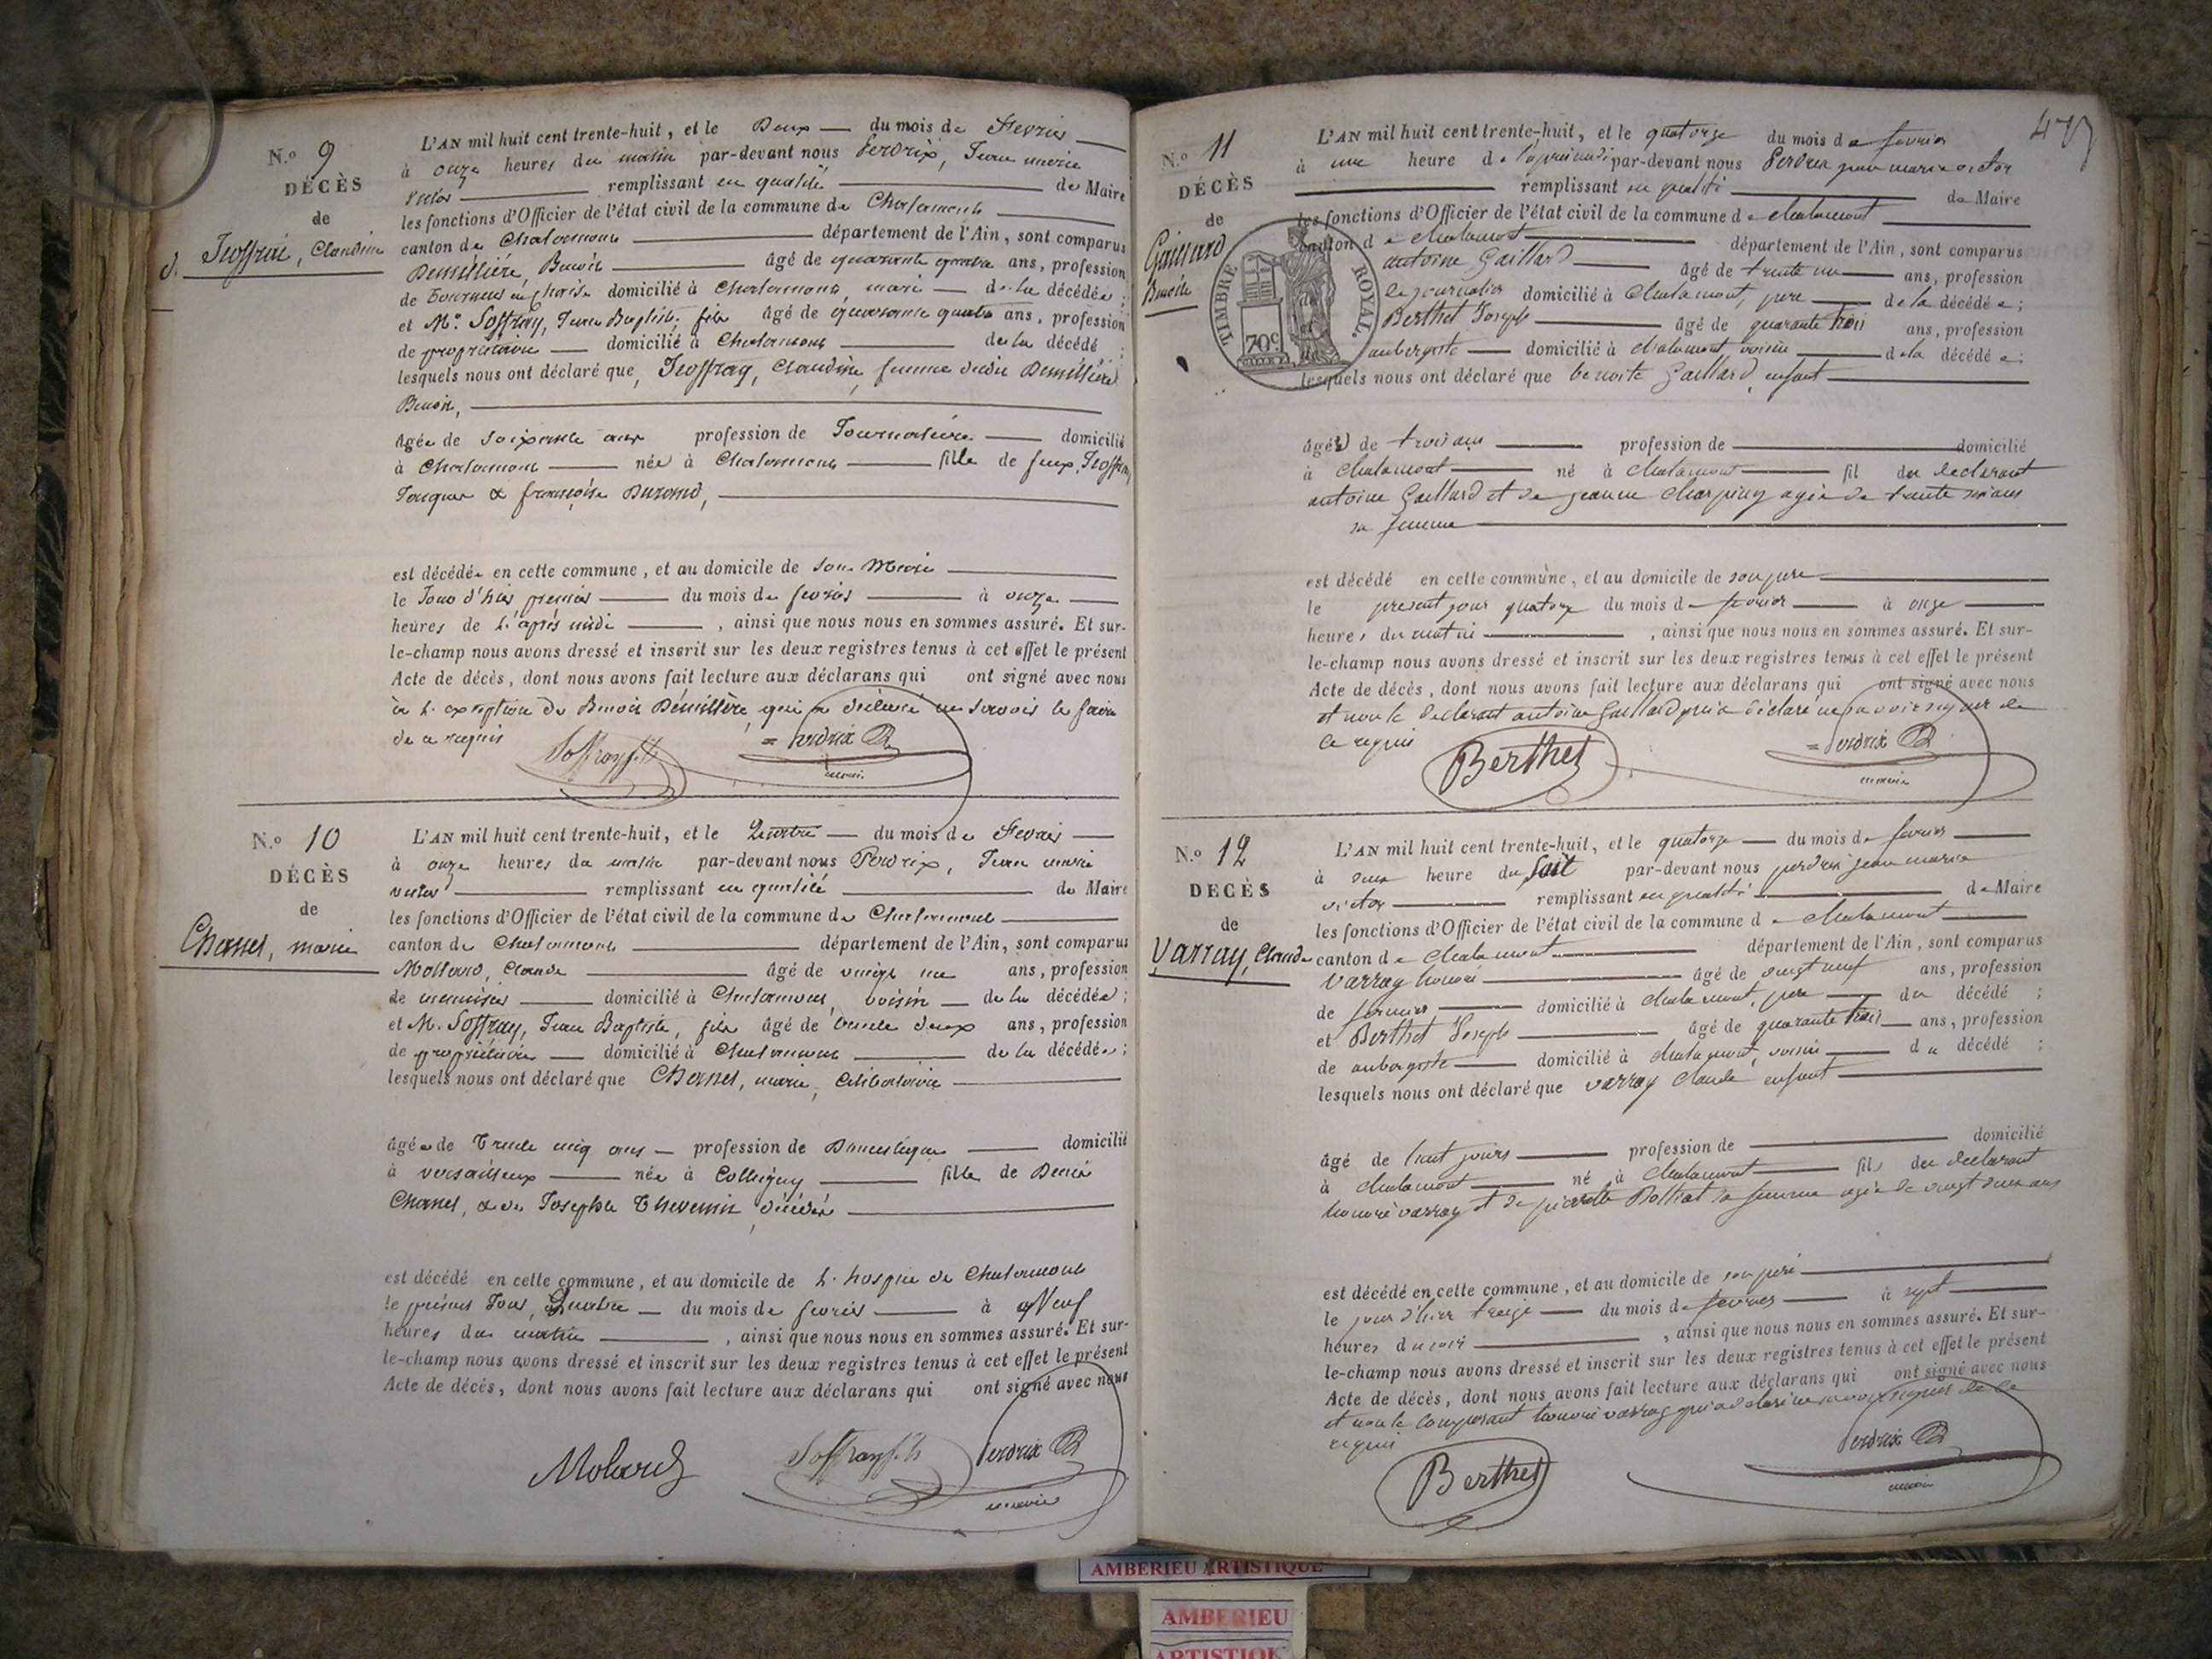 N.o 9
DÉCÈS
de
Claudine
L'AN mil huit cent trente-huit, et le Deux du mois de Fevrier
à onze heures du matin par-devant nous Perdrix, Jean marie
Victor remplissant en qualité de Maire
les fonctions d'Officier de l'état civil de la commune de Chalamont
canton de Chalamont département de l'Ain, sont comparus
Benoit âgé de quarante quatre ans, profession
de domicilié à Chalamont, mari de la décédée;
et Mr. Soffray, Jean Baptiste, fils âgé de quarante quatre ans, profession
de propriétaire domicilié à Chalamont de la décédé;
lesquels nous ont déclaré que, Claudine, femme dudit
Benoit,
âgée de soixante ans profession de Journalière domicilié
à Chalamont née à Chalamont fille de feux
Jacques & françoise Durand,
est décédée en cette commune, et au domicile de son Mari
le Jour d'hier premier du mois de fevrier à onze
heures de l'après midi, ainsi que nous nous en sommes assuré. Et sur-
le-champ nous avons dressé et inscrit sur les deux registres tenus à cet effet le présent
Acte de décès, dont nous avons fait lecture aux déclarans qui ont signé avec nous
à l'exception de Benoit qui a déclaré ne savoir le faire
de ce requis
Soffray fils
Perdrix
maire
N.o 10
DÉCÈS
de
Chanel, marie
L'AN mil huit cent trente-huit, et le Quatre du mois de Fevrier
à onze heures du matin par-devant nous Perdrix, Jean marie
victor remplissant en qualité de Maire
les fonctions d'Officier de l'état civil de la commune de Chalamont
canton de Chalamont département de l'Ain, sont comparus
Mollard, Claude âgé de vingt un ans, profession
de menuisier domicilié à Chalamont, voisin de la décédée;
et M. Soffray, Jean Baptiste, fils âgé de trente deux ans, profession
de propriétaire domicilié à Chalamont de la décédée;
lesquels nous ont déclaré que Chanel, marie, Célibataire
âgée de Trente cinq ans profession de Domestique domicilié
à versailleux née à Colligny fille de Denis
Chanel, & de Josephte Thevenin, décédés
est décédé en cette commune, et au domicile de L'hospice de Chalamont
le présent Jour, Quatre du mois de fevrier à Neuf
heures du matin, ainsi que nous nous en sommes assuré. Et sur-
le-champ nous avons dressé et inscrit sur les deux registres tenus à cet effet le présent
Acte de décès, dont nous avons fait lecture aux déclarans qui ont signé avec nous
Molard
Soffray fils
Perdrix
maire
N.o 11
DÉCÈS
de
Gaillard
Benoite
L'AN mil huit cent trente-huit, et le quatorze du mois de fevrier
à une heure de l'après midi par-devant nous Perdrix jean marie victor
remplissant en qualité de Maire
les fonctions d'Officier de l'état civil de la commune de chalamont
canton de chalamont département de l'Ain, sont comparus
antoine Gaillard âgé de trente un ans, profession
de journalier domicilié à Chalamont, pere de la décédée;
Berthet Joseph âgé de quarante trois ans, profession
aubergiste domicilié à chalamont, voisin de la décédée;
lesquels nous ont déclaré que benoite Gaillard, enfant
TIMBRE ROYAL.
70c
âgée de trois ans profession de domicilié
à chalamont né à chalamont fil du declarant
antoine Gaillard et de jeanne Charpiny agée de trente six ans
sa femme
est décédé en cette commune, et au domicile de son pere
le present jour quatorze du mois de fevrier à onze
heures du matin, ainsi que nous nous en sommes assuré. Et sur-
le-champ nous avons dressé et inscrit sur les deux registres tenus à cet effet le présent
Acte de décès, dont nous avons fait lecture aux déclarans qui ont signé avec nous
et non le declarant antoine Gaillard qui a déclaré ne savoir signer de
ce requis
Berthet
Perdrix
maire
N.o 12
DÉCÈS
de
Varray, Claude
L'AN mil huit cent trente-huit, et le quatorze du mois de fevrier
à deux heure du soir par-devant nous perdrix jean marie
victor remplissant en qualité de Maire
les fonctions d'Officier de l'état civil de la commune de chalamont
canton de chalamont département de l'Ain, sont comparus
varray honoré âgé de vingt neuf ans, profession
de fermier domicilié à chalamont, pere du décédé;
et Berthet Joseph âgé de quarante trois ans, profession
de aubergiste domicilié à chalamont, voisin du décédé;
lesquels nous ont déclaré que varray claude enfant
âgé de huit jours profession de domicilié
à chalamont né à chalamont fils du declarant
honoré varray et de pierrette sa femme agée de vingt deux ans
est décédé en cette commune, et au domicile de son pere
le jour d'hier treize du mois de fevrier à sept
heures du soir, ainsi que nous nous en sommes assuré. Et sur-
le-champ nous avons dressé et inscrit sur les deux registres tenus à cet effet le présent
Acte de décès, dont nous avons fait lecture aux déclarans qui ont signé avec nous
et non le comparant honoré varray qui a declaré ne savoir signer de ce
requis
Berthet
Perdrix
maire
AMBERIEU ARTISTIQUE
AMBERIEU
ARTISTIQUE